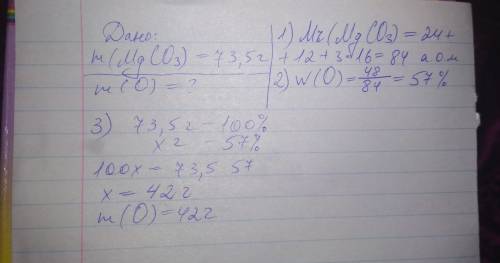 Дано:
m(MgCO3) = 73,5г
m(O) = ?
1) Mr(MgCO3) = 24+
+ 12 + 3*16 = 84 а.о.м
2) w(O) = 48/84 = 57%
3) 73,5г – 100%
xг – 57%
100x = 73,5 57
x = 42г
m(O) = 42г